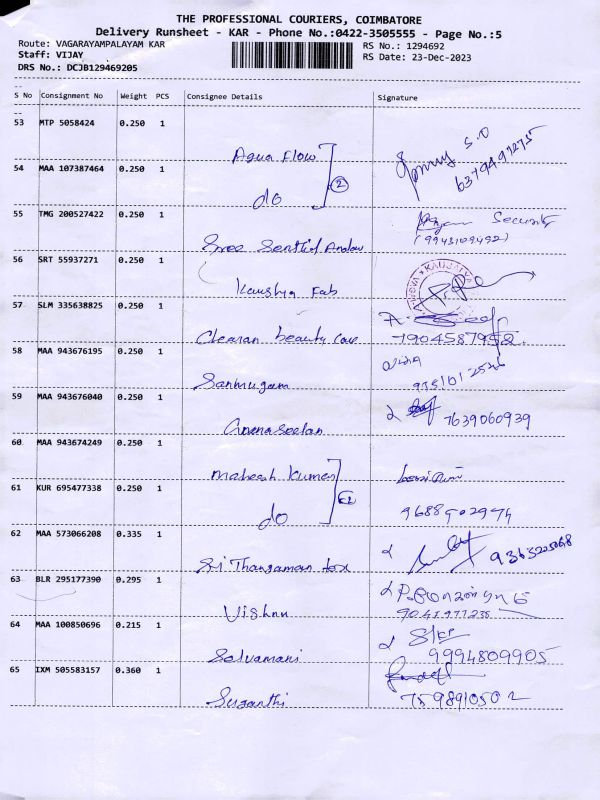 THE PROFESSIONAL COURIERS, COIMBATORE
Delivery Runsheet - KAR - Phone No.:0422-3505555 - Page No.:5
Route: VAGARAYAMPALAYAM KAR RS No.: 1294692
Staff: VIJAY RS Date: 23-Dec-2023
DRS No.: DCJB129469205
S No Consignment No Weight PCS Consignee Details Signature
53 MTP 5058424 0.250 1
Aqua Flow
54 MAA 107387464 0.250 1
do 2
55 TMG 200527422 0.250 1 Security
Sree Senthil (9943109492)
56 SRT 55937271 0.250 1
Kaushya Fab
57 SLM 335638825 0.250 1
beauty Care 7904587952
58 MAA 943676195 0.250 1
Sanmugam
59 MAA 943676040 0.250 1 7639060939
60 MAA 943674249 0.250 1
Mahesh Kumar
61 KUR 695477338 0.250 1
do
62 MAA 573066208 0.335 1
Sri Thangaman tex
63 BLR 295177390 0.295 1
Vishnu
64 MAA 100850696 0.215 1
Selvamani 9994809905
65 IXM 505583157 0.360 1
Suganthi 7598910502